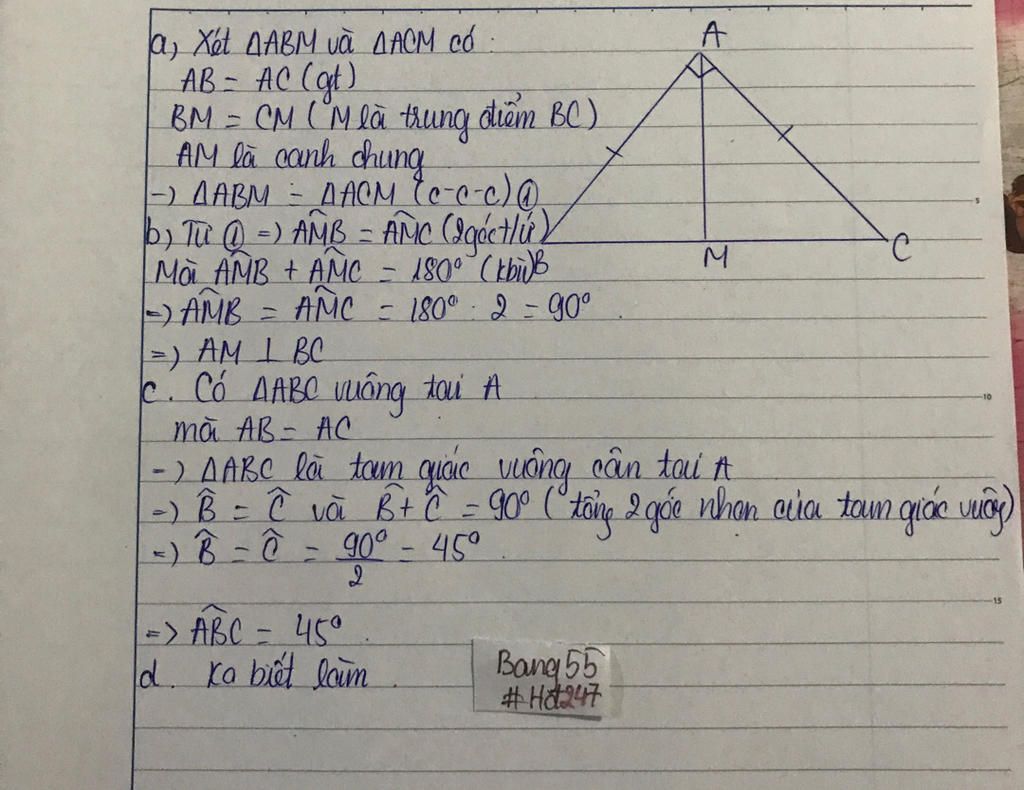 a, Xét ΔABM và ΔACM có :
AB = AC (gt)
BM = CM (M là trung điểm BC)
AM là canh chung
-) ΔABM = ΔACM (c-c-c) ①
b, Từ ① =) AM̂B = AM̂C (2góct/ứ)
Mà AM̂B + AM̂C = 180° (kbù)
=) AM̂B = AM̂C = 180° : 2 = 90°.
=) AM ⊥ BC
c. Có ΔABC vuông tai A
mà AB = AC
-) ΔABC là tam giác vuông cân tai A
=) B̂ = Ĉ và B̂ + Ĉ = 90° (tổng 2 góc nhon của tam giác vuông)
=) B̂ = Ĉ = 90°/2 = 45°.
=> AB̂C = 45°.
d. Ko biết làm.
A
B
M
C
5
10
15
Bang55
#Hđ247